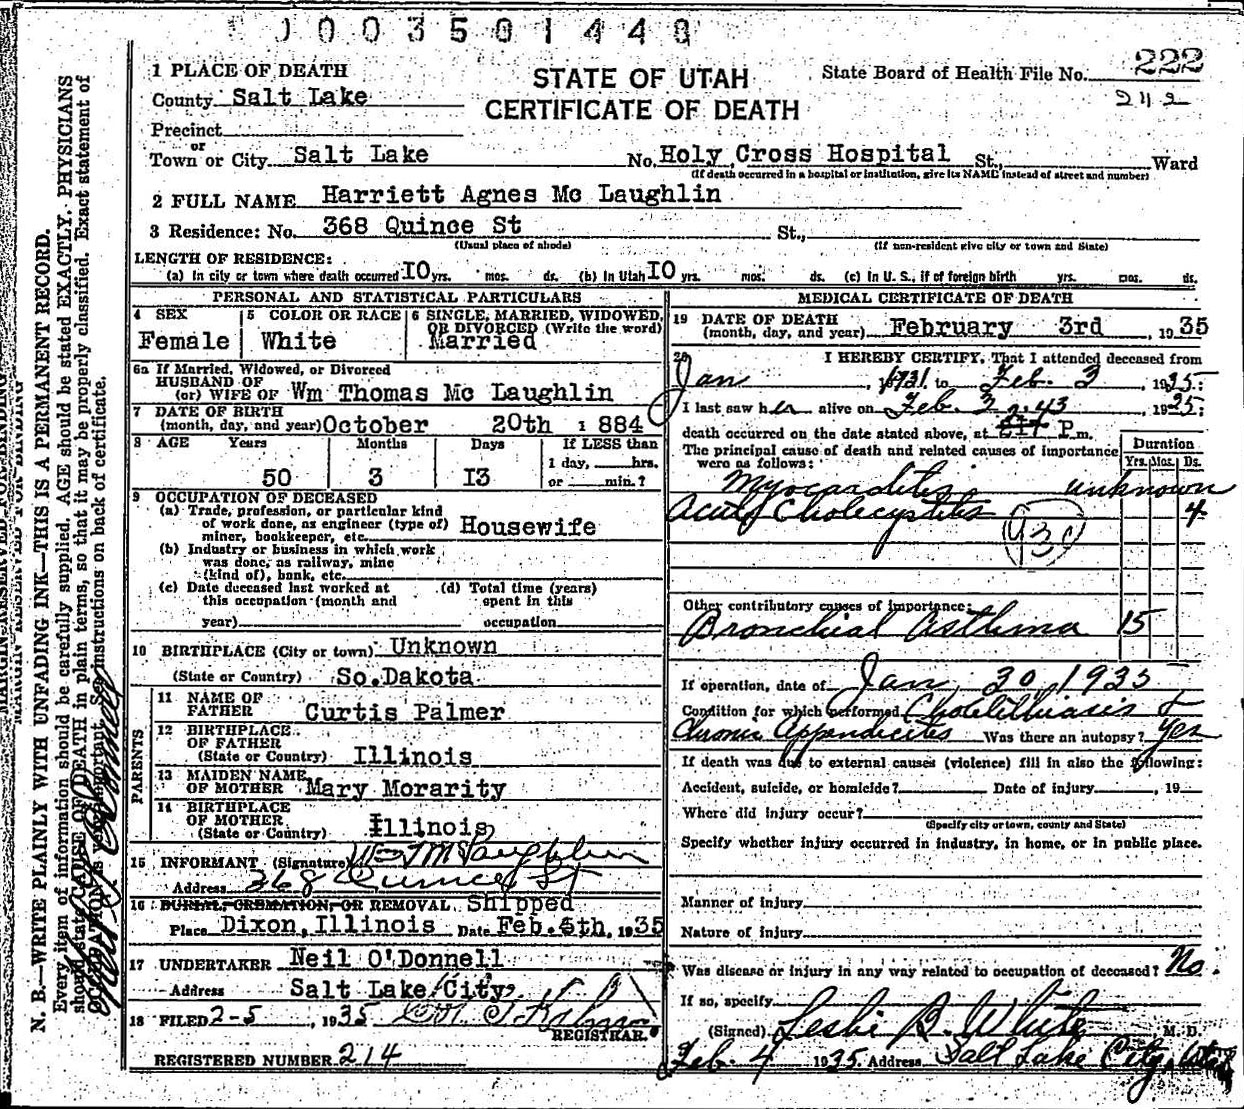 1003501448
1 PLACE OF DEATH
STATE OF UTAH
CERTIFICATE OF DEATH
State Board of Health File No. 222
County Salt Lake
212
Precinct
or
Town or City Salt Lake No. Holy Cross Hospital St., Ward
(If death occurred in a hospital or institution, give its NAME instead of street and number)
2 FULL NAME Harriett Agnes Mc Laughlin
3 Residence: No. 368 Quince St St.,
(Usual place of abode) (If non-resident give city or town and State)
LENGTH OF RESIDENCE:
(a) In city or town where death occurred IO yrs. mos. ds. (b) In Utah IO yrs. mos. ds. (c) In U. S., if of foreign birth yrs. mos. ds.
PERSONAL AND STATISTICAL PARTICULARS
4 SEX
Female
5 COLOR OR RACE
White
6 SINGLE, MARRIED, WIDOWED,
OR DIVORCED (Write the word)
Married
6a If Married, Widowed, or Divorced
HUSBAND OF
(or) WIFE OF Wm Thomas Mc Laughlin
7 DATE OF BIRTH
(month, day, and year) October 20th 1884
8 AGE Years Months Days If LESS than
1 day, hrs.
50 3 I3 or min.?
9 OCCUPATION OF DECEASED
(a) Trade, profession, or particular kind
of work done, as engineer (type of)
miner, bookkeeper, etc. Housewife
(b) Industry or business in which work
was done, as railway, mine
(kind of), bank, etc.
(c) Date deceased last worked at
this occupation (month and
year)
(d) Total time (years)
spent in this
occupation
10 BIRTHPLACE (City or town) Unknown
(State or Country) So.Dakota
PARENTS
11 NAME OF
FATHER Curtis Palmer
12 BIRTHPLACE
OF FATHER
(State or Country) Illinois
13 MAIDEN NAME
OF MOTHER Mary Morarity
14 BIRTHPLACE
OF MOTHER
(State or Country) Illinois
15 INFORMANT (Signature) Wm T McLaughlin
Address 368 Quince St
16 BURIAL, CREMATION, OR REMOVAL Shipped
Place Dixon, Illinois Date Feb.5th, 1935
17 UNDERTAKER Neil O'Donnell
Address Salt Lake City
18 FILED 2-5, 1935
REGISTRAR.
REGISTERED NUMBER 214
MEDICAL CERTIFICATE OF DEATH
19 DATE OF DEATH
(month, day, and year) February 3rd, 1935
20 I HEREBY CERTIFY, That I attended deceased from
Jan, 1931 to Feb. 3, 1935;
I last saw her alive on Feb. 3, 1935;
2.43
death occurred on the date stated above, at P m.
The principal cause of death and related causes of importance
were as follows:
Duration
Yrs. Mos. Ds.
Myocarditis unknown
Acute Cholecystitis 4
Other contributory causes of importance:
Bronchial Asthma 15
If operation, date of Jan 30, 1935
Condition for which performed Cholelithiasis &
Chronic Appendicitis Was there an autopsy? Yes
If death was due to external causes (violence) fill in also the following:
Accident, suicide, or homicide? Date of injury, 19
Where did injury occur?
(Specify city or town, county and State)
Specify whether injury occurred in industry, in home, or in public place.
Manner of injury
Nature of injury
Was disease or injury in any way related to occupation of deceased? No.
If so, specify
(Signed) Leslie B. White M. D.
Feb. 4 1935 Address Salt Lake City, Utah
MARGIN RESERVED FOR BINDING
N. B.—WRITE PLAINLY WITH UNFADING INK—THIS IS A PERMANENT RECORD.
Every item of information should be carefully supplied. AGE should be stated EXACTLY. PHYSICIANS
should state CAUSE OF DEATH in plain terms, so that it may be properly classified. Exact statement of
OCCUPATION is very important. See instructions on back of certificate.